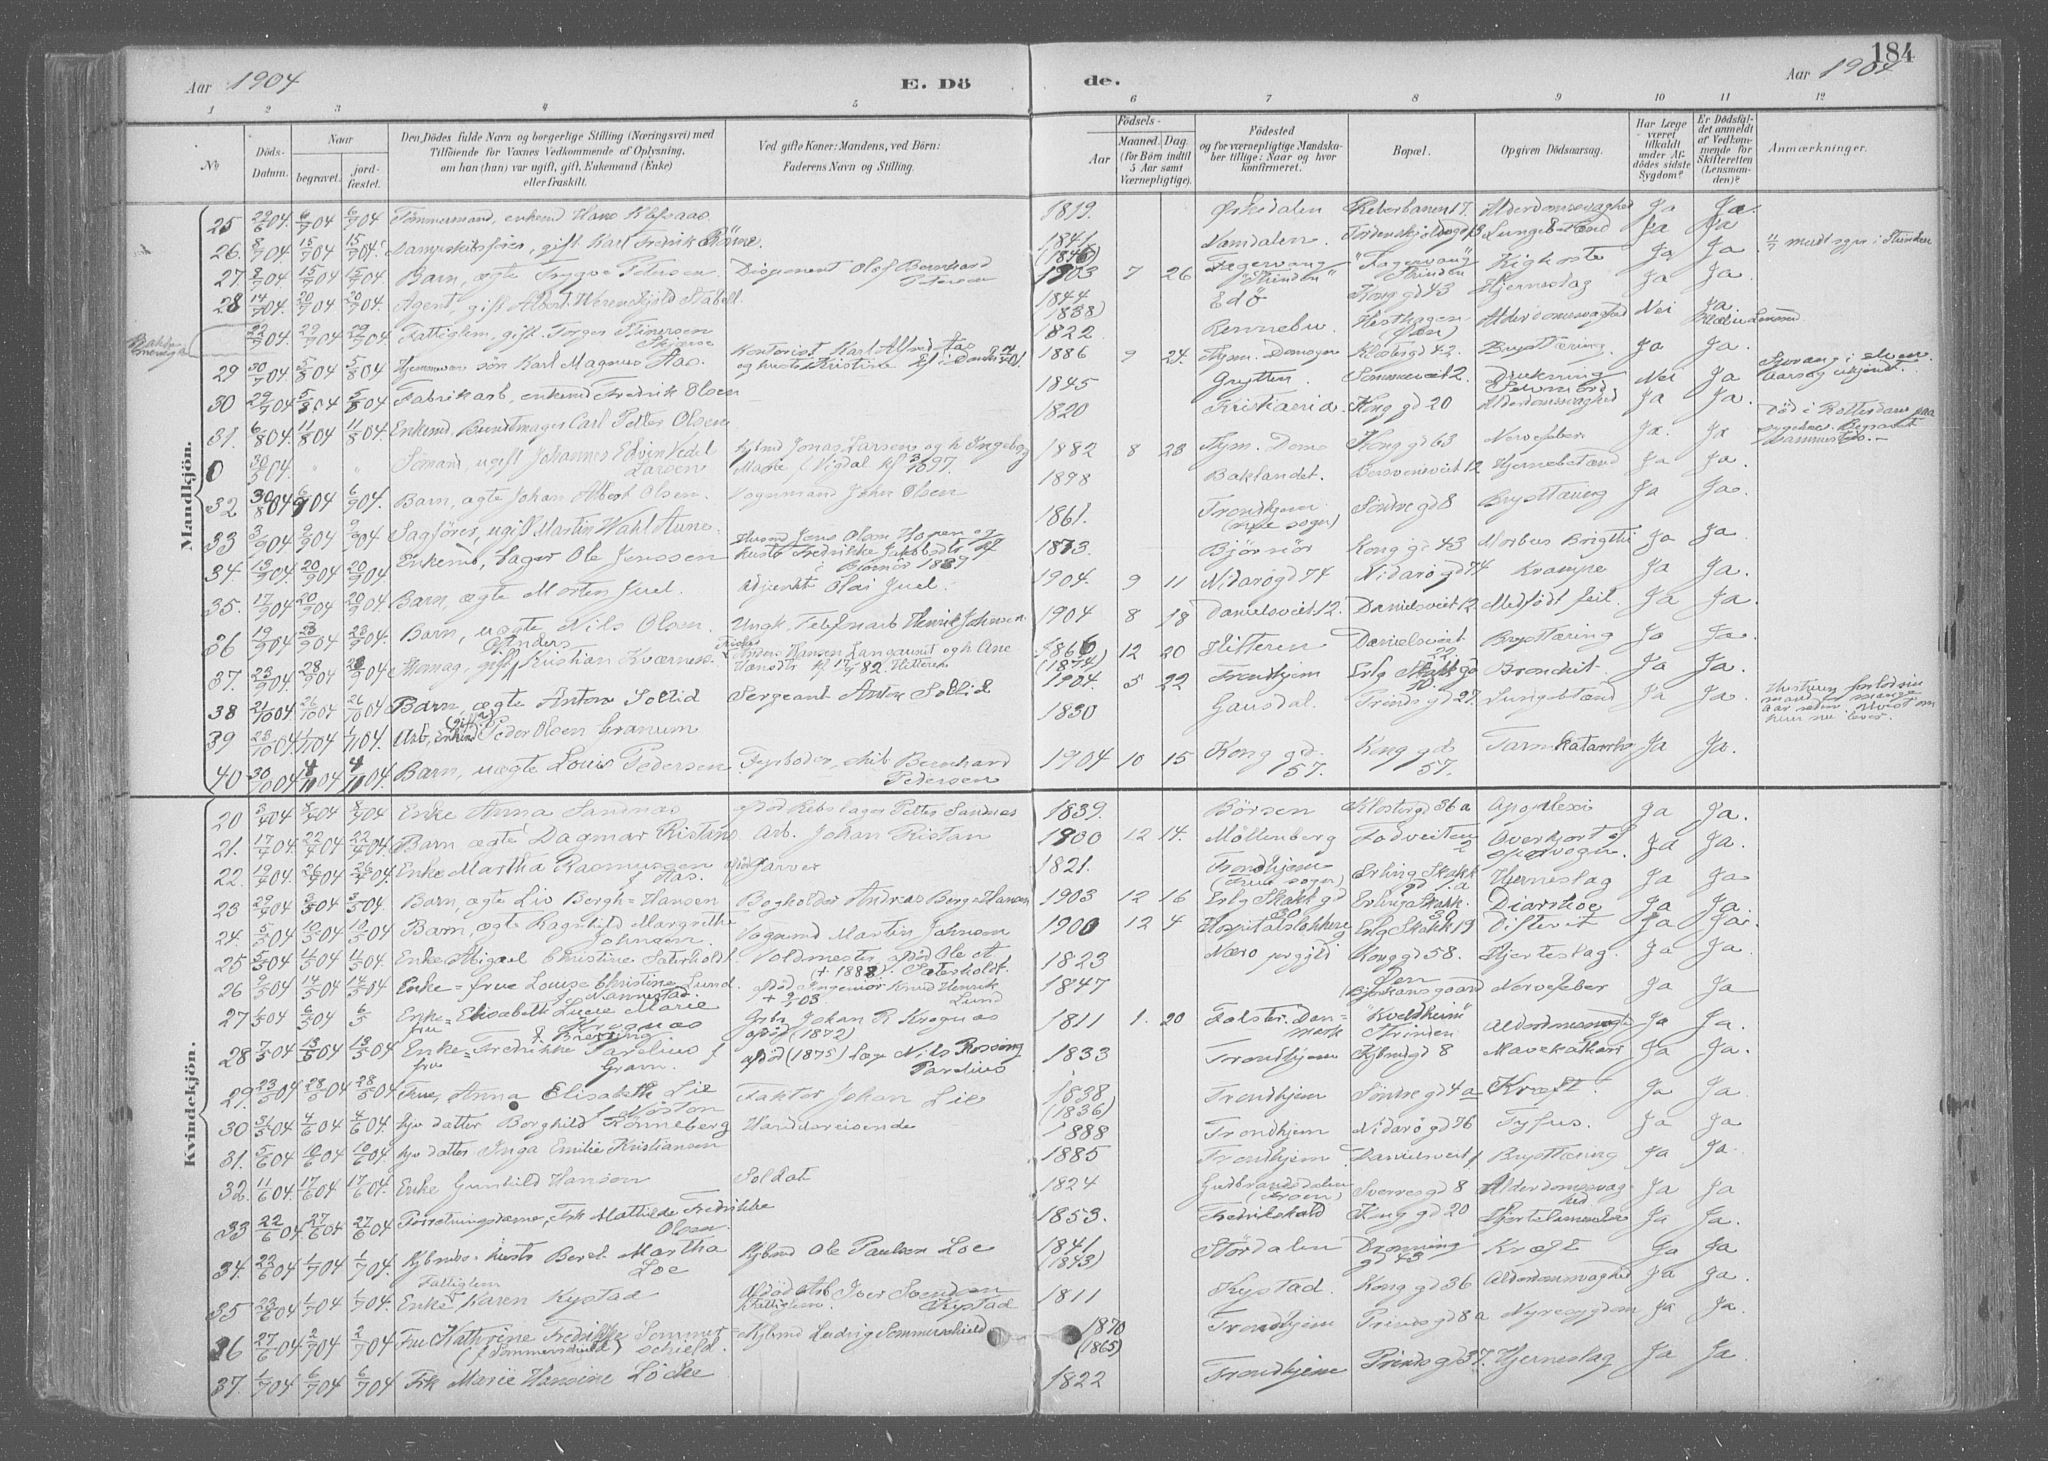 184
Aar 1904 E. Dö de. Aar 1904
1 2 3 4 5 6 7 8 9 10 11 12
№ Döds-Datum. Naar begravet. jord-fæstet. Den Dödes fulde Navn og borgerlige Stilling (Næringsvei) med Tilföiende for Voxnes Vedkommende af Oplysning, om han (hun) var ugift, gift, Enkemand (Enke) eller fraskilt. Ved gifte Koner: Mandens, ved Börn: Faderens Navn og Stilling. Födsels- Aar Maaned. Dag. (for Börn indtil 5 Aar samt Værnepligtige). Födested og for værnepligtige Mandska-ber tillige: Naar og hvor konfirmeret. Bopæl. Opgiven Dödsaarsag. Har Læge været tilkaldt under Af-dödes sidste Sygdom? Er Dödsfal-det anmeldt af Vedkom-mende for Skifteretten (Lensman-den)? Anmærkninger.
Mandkjön.
25 29/6 04. 6/7 04 6/7 04 Tömmermand, enkemd Hans Klefsaas. 1819. Örkedalen Reberbanen 17. Alderdomssvaghed Ja Ja.
26. 8/7 04 15/7 04 15/7 04. gift. Karl Fredrik 1841 (1846) Namdalen. Lungebetænd Ja Ja
27. 8/7 04 15/7 04 15/7 04. Barn, ægte Trygve Petersen. Disponent Olaf Bernhard Petersen 1903 7 26 Fagervang "Strinden" "Fagervang Strinden Kighoste Ja Ja
28 14/7 04. 20/7 04 20/7 04. Agent, gift Albert Werenskjold Stabell 1844 (1838) Edö Kong gd 43 Hjerneslag Ja Ja.
22/7 04 29/7 04 29/7 04 Fattiglem, gift. Torger 1822 Rennebu. Alderdomssvaghed Nei Ja.
29 30/7 04 5/8 04 5/8 04 Hjemmevær. sön Karl Magnus Aas. Kontorist Karl Alfred Aas 1886 9 24. Klosterg d 42. Brysttæring. Ja Ja.
30 29/7 04 5/8 04 5/8 04 Fabrikarb, enkemd Fredrik Olsen 1845 Grytten. Sommerveit 2. Drukning Nei Ja Sprang i elven
31. 6/8 04. 11/8 04 11/8 04. Enkemd. Buntmager Carl Petter Olsen 1820 Kristiania Kong gd 20 Alderdomssvaghed Ja Ja.
0 30/5 04. " " Sömand, ugift Johannes Edvin Vedel Larsen Jonas Larsen og h Ingeborg 1882 8 28 Kong gd 63 Nervefeber Ja. Ja Död i Rotterdam paa
32 30/8 04 6/9 04 6/9 04. Barn, ægte Johan Albert Olsen. Vognmand John Olsen 1898 Baklandet. 12 Hjernebetænd Ja Ja.
33 3/9 04. 9/9 04 9/9 04 Sagförer, ugift Martin Wahl Aune. 1861. Trondhjem Söndre gd 8 Brysttæring Ja Ja.
34 13/9 04. 20/9 04 20/9 04 Enkemd, Sager Ole Jenssen Björnör 1873 Björnör Kong gd 43 Morbus Brigtii Ja Ja.
35. 17/9 04 20/9 04 20/9 04 Barn, ægte Morten Juel. adjunkt Olai Juel. 1904. 9 11 Nidarögd 74 Nidarö gd 74 Krampe Ja Ja.
36 19/9 04 23/9 04 23/9 04. Barn, uægte Nils Olsen. Ungk. Telefonarb Henrik Johnsen 1904 8 18 Danielsveit 12. Danielsveit 12 Medfödt feil. Ja Ja.
37. 23/9 04. 28/9 04 28/9 04 gift Anders Kristian Kværnes. Anders Hansen og h. Ane Hitteren 1866 (1874) 12 20 Hitteren Danielsveit 22. Brysttæring Ja Ja.
38 21/10 04 26/10 04 26/10 04 Barn, ægte Anton Sollid Sergeant Anton Sollid 1904. 5 22 Trondhjem Erlg Skakk gd Bronchit. Ja Ja.
39 23/10 04. 1/11 04 1/11 04. Arb, Enkemd (gift?) Peder Olsen Granum 1830 Gausdal. Prinds gd 27. Lungebetænd Ja Ja. Hustruen forlod sin mand for mange aar siden. Uvist om hun nu lever.
40 30/10 04 4/11 04 4/11 04. Barn, uægte Louis Pedersen Fyrböder, Bernhard Pedersen 1904 10 15 Kong gd. 57. Kong gd 57. Tarmkatarrh Ja Ja.
Kvindekjön.
20 3/4 04 8/4 04 8/4 04 Enke Anna Sandnæs afdöd Rebslager Petter Sandnæs 1839. Börsen Klosterg d 36 a Apoplexi Ja Ja.
21. 17/4 04. 22/4 04 22/4 04. Barn ægte Dagmar Ristan Arb. Johan Ristan 1900 12 14. Möllenberg Todveiten 2 Overkjört af sporvogn. Ja Ja.
22. 19/4 04. 26/4 04 26/4 04. Enke Martha Rasmussen f Aas. afdöd Garver 1821. Trondhjem (Frue sogn) Erling Skakk gd 1. a Hjerneslag Ja Ja
23 29/4 04 3/5 04 3/5 04. Barn, ægte Liv Bergh=Hansen Bogholder Andreas Berg=Hansen 1903 12 16 Erlg Skakk gd 30 Erling Skakk. 30 Diarrhoe Ja Ja.
24. 5/5 04 10/5 04 10/5 04. Barn, ægte Ragnhild Margrethe Johnsen. Vognmd Martin Johnsen 1900 12 4 Hospitalslökkene Erlg Skakk 19 Difterit Ja Ja.
25 5/5 04 11/5 04 11/5 04. Enke Abigael Christine Säterholdt Voldmester, afdöd Ole A Säterholdt. (+ 1888). 1823 Nærö prgjld Kong gd 58. Hjerteslag. Ja Ja.
26 9/5 04 14/5 04 14/5 04. Enke=frue Louise Christine Lund. f Nannestad. afdöd Ingeniör Knud Henrik Lund 1847 Nervefeber Ja Ja
27 1/5 04. 6/5 04 6/5 Enke=frue Elisabeth Lucie Marie Krognæs Johan R Krognæs afdöd (1872) 1811 1. 20 Falster. Danmark Kveldheim Strinden Alderdomssvaghed Ja Ja.
28 7/5 04 13/5 04 13/5 04 Enke=frue Fredrikke Parelius f Gram. afdöd (1875) Læge Nils Rosing Parelius 1833 Trondhjem 8 Mavekatharr Ja Ja.
29. 23/5 04 28/5 04 28/5 04. Frue, Anna Elisabeth Lie f Nösten Faktor Johan Lie 1838 (1836) Trondhjem Söndregd 4 a Kræft. Ja Ja
30 31/5 04. 4/6 04 4/6 04. hjv datter Borghild Rönneberg Handelsreisende 1888 Trondhjem Nidarö gd 76 Tyfus. Ja Ja.
31. 5/6 04 10/6 04 10/6 04. hjv datter Inga Emilie Kristiansen 1885 Trondhjem Danielsveit 1 Brysttæring Ja Ja.
32. 11/6 04. 17/6 04 17/6 04. Enke Gunhild Hansen Soldat 1824 Gudbrandsdalen (Froen) Sverresgd 8 Alderdomssvag-hed Ja Ja
33 22/6 04 27/6 04 27/6 04 Forretningsdame, Frk Mathilde Fredrikke Olsen. 1853. Fredrikshald Kong gd 20 Hjertelammelse Ja Ja.
34. 23/6 04 1/7 04 1/7 04. Kjbmds. hustr Beret Martha Loe Kjbmd Ole Paulsen Loe 1841 (1843) Stördalen Dronning gd 43 Kræft Ja Ja
35 23/6 04 1/7 04 1/7 04. Fattiglem Enke Karen Kystad Afdöd Arb Iver Svendsen Kystad Fattiglem. 1811 Kystad. Kong gd 36 Alderdomssvaghed Ja Ja.
36 27/6 04 2/7 04 2/7 04 Frue Kathrine Fredrikke Sommer-schield. (f Sommerschield) Kjbmd Ludvig Sommerschield 1870 (1865) Trondhjem Prinds gd 8 a Nyresygdom Ja Ja.
37. 1/7 04 6/7 04 6/7 04 Frk Marie Hansine Löcke 1822 Trondhjem Prinds gd 37. Hjerneslag Ja Ja.